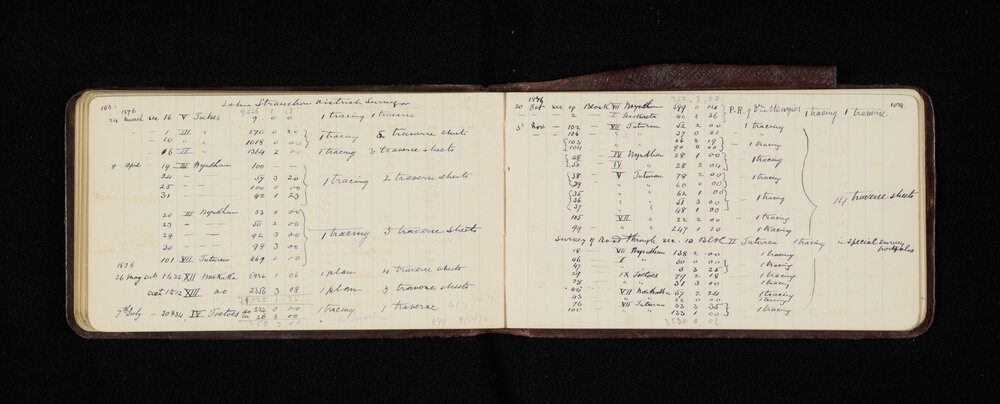 103.
John Strauchon District Surveyor
1876
24 march sec 16 V Toetoes 9 0 0 1 tracing 1 traverse
— — 1 III " 270 0 20
— 10 " " 1018 0 00 1 tracing 5 traverse sheets
— 16 II " 1364 2 00 1 tracing 3 traverse sheets
8 april 19 III Wyndham 100
24 — — 59 3 20
25 — — 100 0 00 1 tracing 2 traverse sheets
31 — — 92 1 23
20 III Wyndham 53 0 00
23 — — 50 2 00
28 — — 92 3 00 1 tracing 3 traverse sheets
30 — — 98 3 00
101 VII Tuturau 469 0 00
1876
26 May sect. 1 to 22 XII Waikaka 5926 1 06 1 plan 4 traverse sheets
Sect 1 to 12 XIII do 2356 3 08 1 plan 3 traverse sheets
7th July — IV Toetoes 224 0 00 1 tracing 1 traverse
26 3 00
250 3 00
104.
250 . 3 . 00
1876
20 Oct sec 19 Block VII Wyndham 599 0 04 1 tracing 1 traverse
— — 2 — I 40 3 36
3 Nov — 102 — VII Tuturau 52 2 00 1 tracing
— 106 " " 37 0 21
103 " " 56 3 19 1 tracing
104 " " 90 0 00
48 — IV Wyndham 28 1 00 1 tracing
52 — IV — 28 2 04
38 — V Tuturau 78 2 00 1 tracing
39 " " 60 0 00
35 " " 62 1 00
36 " " 51 3 00 1 tracing 14 traverse sheets
37 " " 48 1 00
105 VII " 22 2 00 1 tracing
99 " " 247 1 20 1 tracing
Survey of Road through sec. 10 Blck II Tuturau 1 tracing in special survey portfolio
18 — VII Wyndham 138 2 00 1 tracing
46 — I " 50 0 00 1 tracing
47 " " 5 3 25 1 tracing
59 IX Toetoes 79 2 18 1 tracing
78 " " 31 3 00 1 tracing
42 — VII 67 2 24 1 tracing
43 " " 22 0 00 1 tracing
76 VII Tuturau 33 3 35 1 tracing
100 " " 133 1 00 1 tracing
2536 0 06